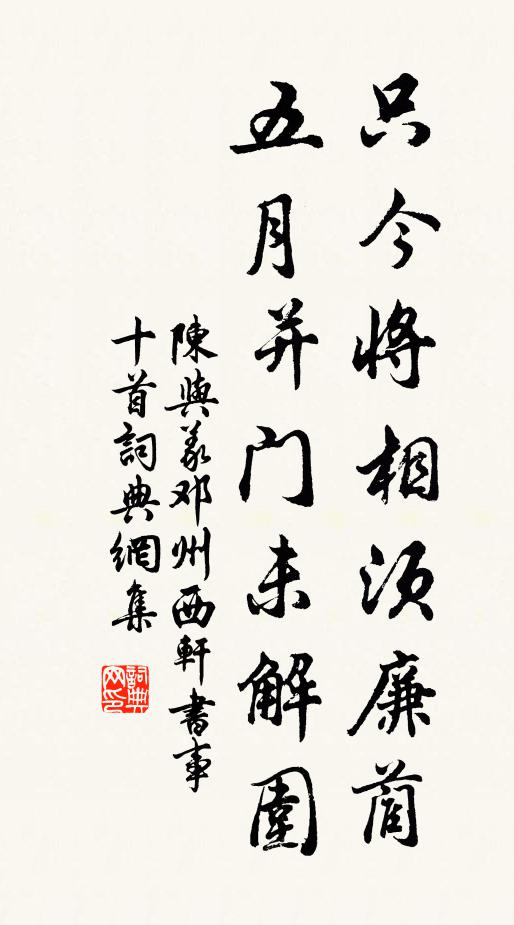 只今將相須廉藺
五月并门未解圍
陳與義邓州西軒書事
十首詞典網集
詞典网印